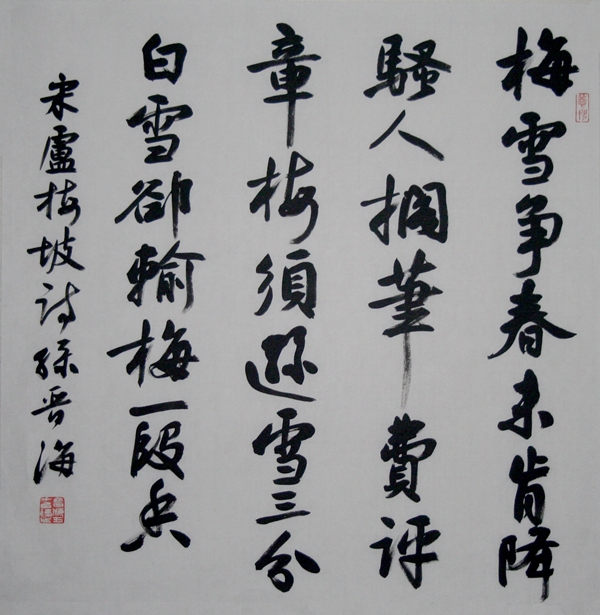 梅雪争春未肯降
騷人擱筆費評
章梅須遜雪三分
白雪卻輸梅一段香
宋盧梅坡詩孫晋海